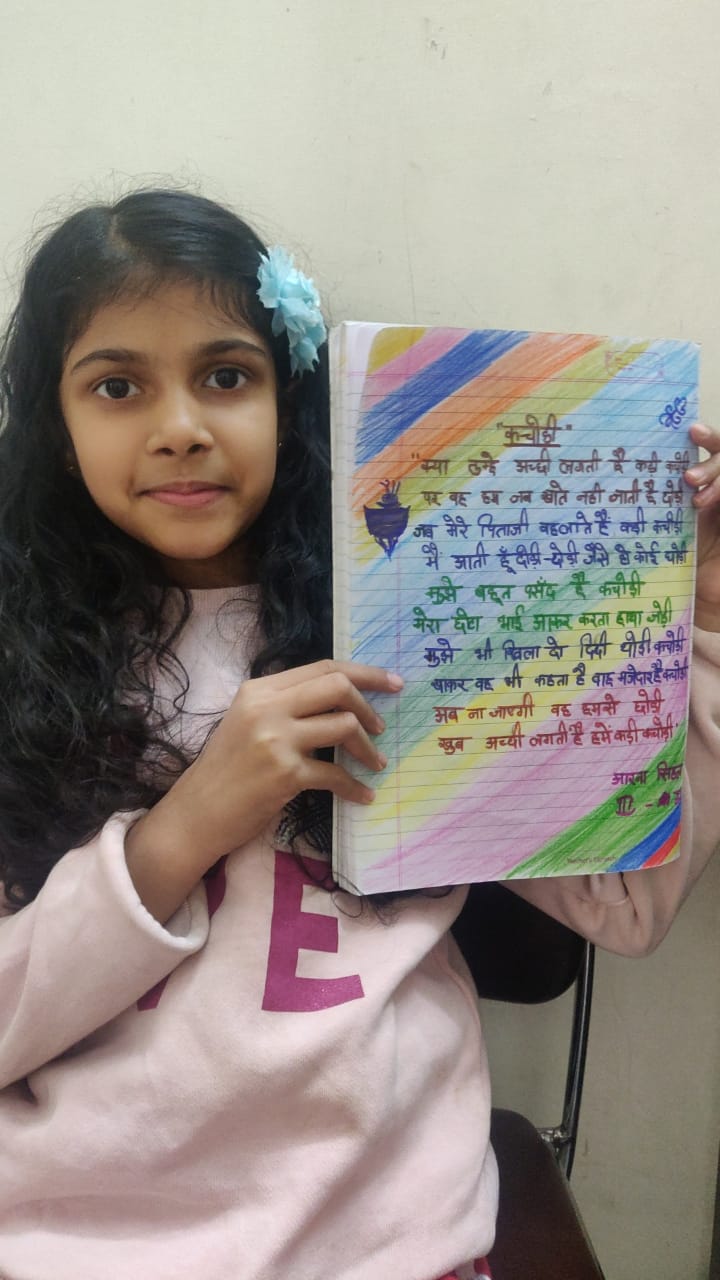 "कचोड़ी"
"क्या तुम्हे अच्छी लगती है कढ़ी कचोड़ी
पर वह हम जब खाते नही जाती है छोड़ी
जब मेरे पिताजी कहलाते है कढ़ी कचोड़ी
मैं आती हूँ दोड़ी-दोड़ी जैसे हो कोई घोड़ी
मुझे बहुत पसँद है कचोड़ी
मेरा छोटा भाई आकर करता हाथा जोड़ी
मुझे भी खिला दो दिदी थोड़ी कचोड़ी
खाकर वह भी कहता है वाह मजेदार है कचोड़ी
अब ना जाएगी वह हमसे छोड़ी
खुब अच्छी लगती है हमें कढ़ी कचोड़ी"
आरना सिंहल
III -
VE